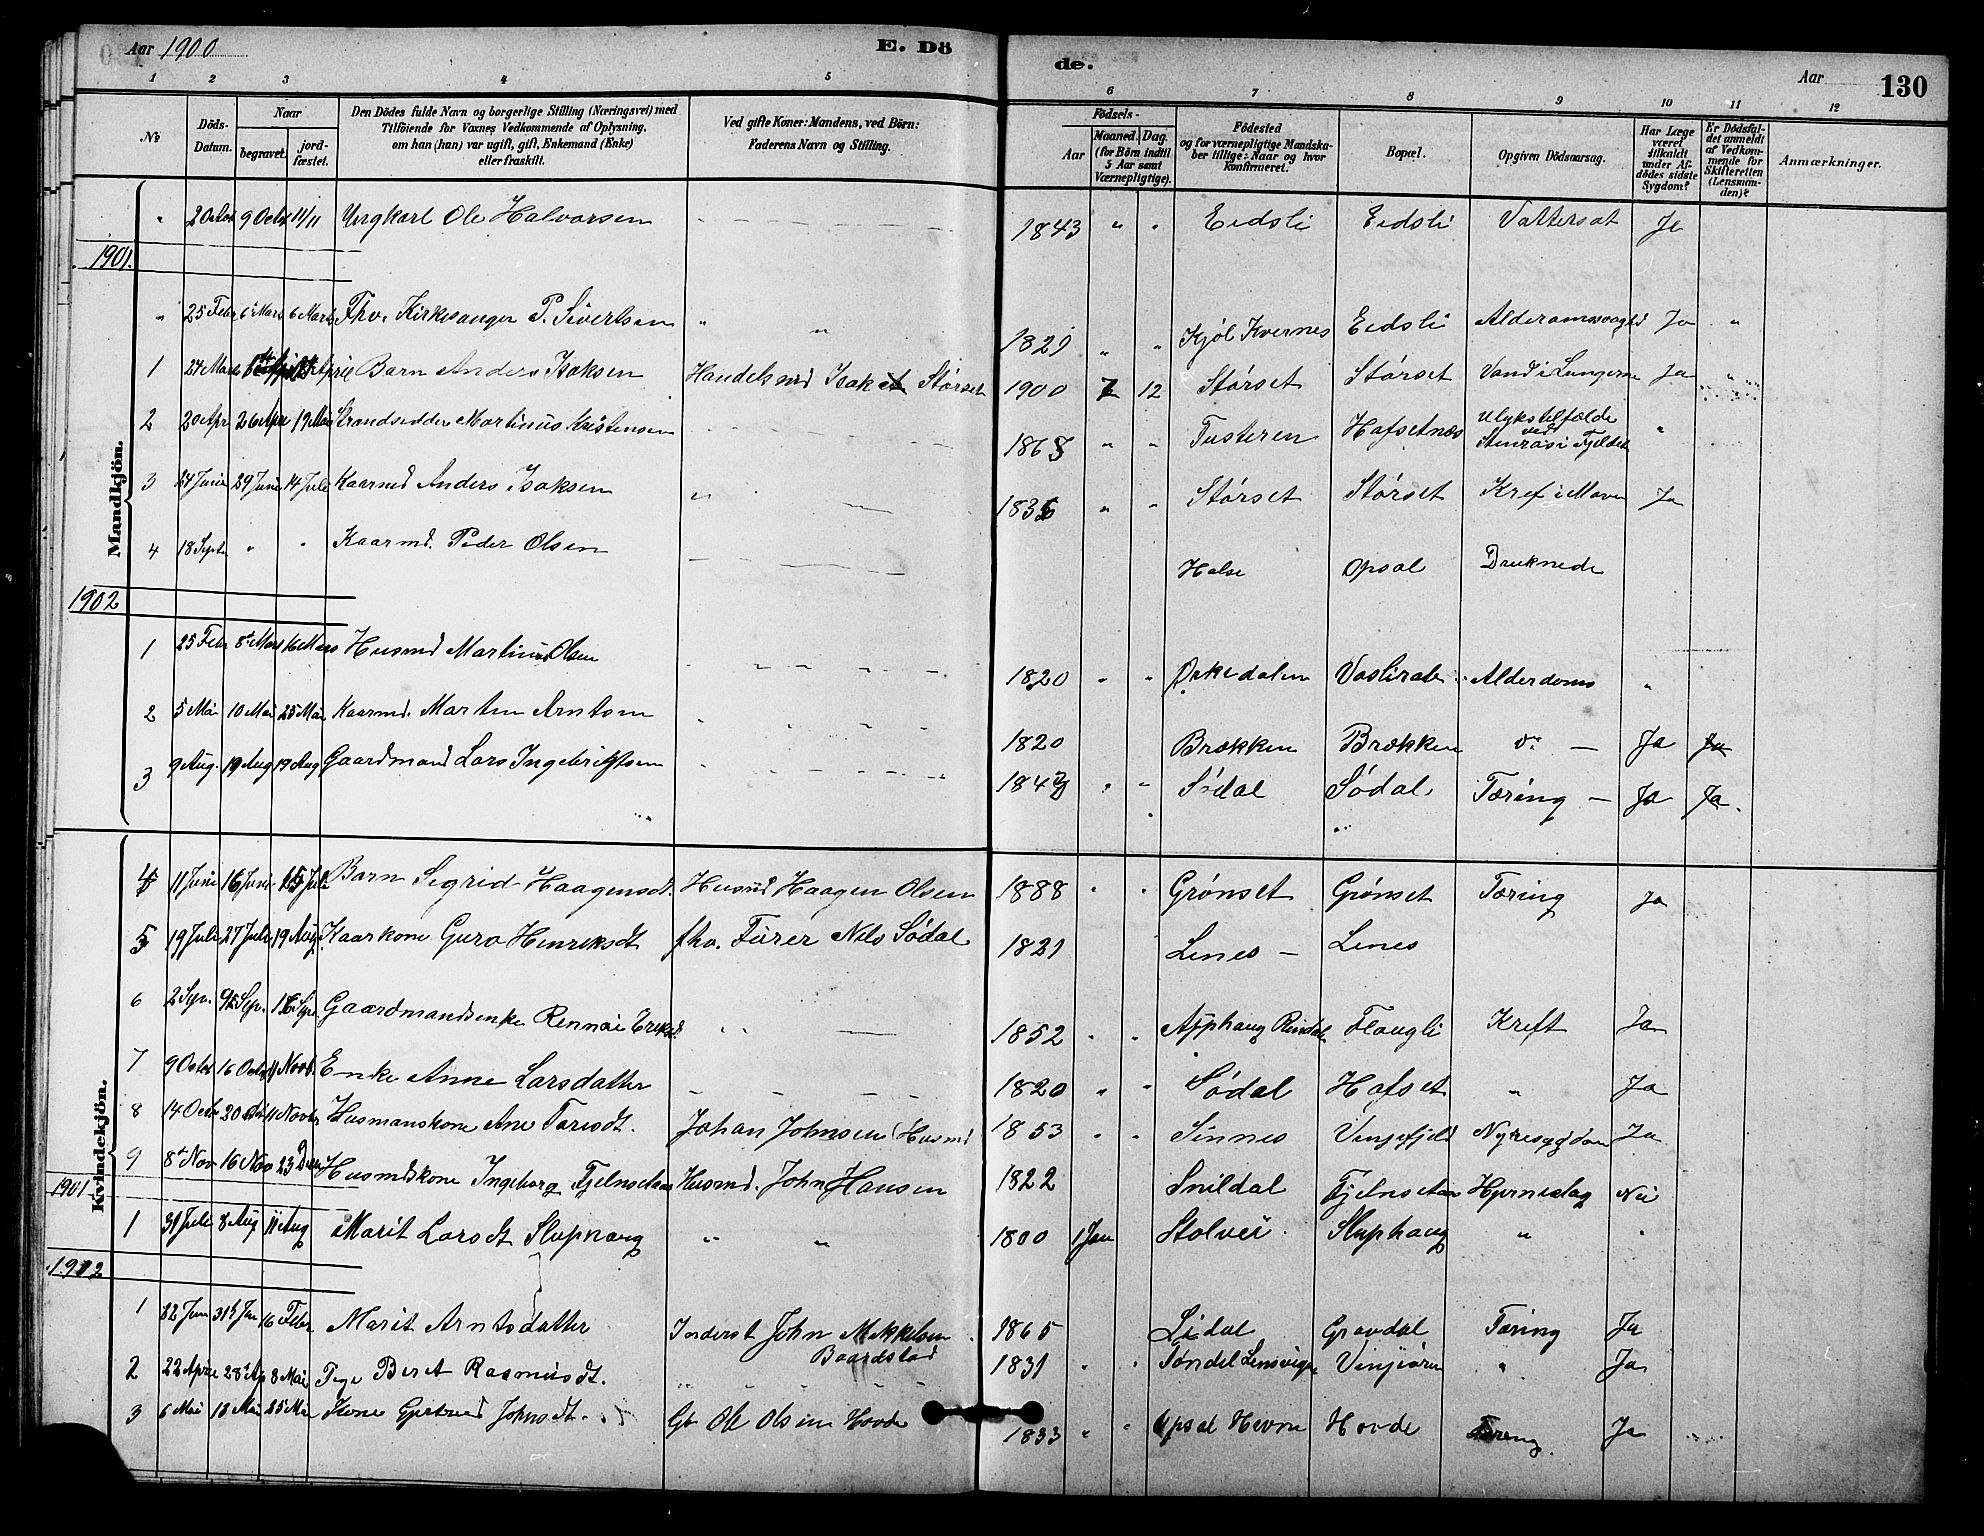 Aar 1900 E. Dö de. Aar 130
1 2 3 4 5 6 7 8 9 10 11 12
No Döds-Datum. Naar begravet. jordfæstet. Den Dödes fulde Navn og borgerlige Stilling (Næringsvei) med Tilföiende for Voxnes Vedkommende af Oplysning, om han (hun) var ugift, gift, Enkemand (Enke) eller fraskilt. Ved gifte Koner: Mandens, ved Börn: Faderens Navn og Stilling. Födsels- Aar Maaned. Dag. (for Börn indtil 5 Aar samt Værnepligtige). Födested og for værnepligtige Mandskaber tillige: Naar og hvor konfirmeret. Bopæl. Opgiven Dödsaarsag. Har Læge været tilkaldt under Afdödes sidste Sygdom? Er Dödsfaldet anmeldt af Vedkommende for Skifteretten (Lensmanden)? Anmærkninger.
Mandkjön.
" 2 Octob 9 Octob 11/11 Ungkarl Ole Halvorsen 1843 " " Eidsli Eidsli Vattersot Ja
1901.
" 25 Febr 6 Mars 6 Mars Fhv. Kirkesanger P. Sivertsen " " 1829 " " Kjöl Kvernes Eidsli Ja "
1 27 Mars Barn Anders Isaksen Handelsmd Isak Störset 1900 7 12 Störset Störset Vand i Lungerne Ja
2 20 Apr 26 Apr 19 Mai Strandsidder Martinus Kristensen " " Tusteren Hafsetnæs Ulykstilfælde ved Stenras i Fjeldet "
3 24 Juni 29 Juni 14 Juli Kaarmd Anders Isaksen " " " Störset Störset Kref i Maven Ja
4 18 Septr " " Kaarmd. Peder Olsen Halse Opsal Druknede
1902
1 25 Febr 8 Mars 16 Mars Husmd Martinus Olsen 1820 " " Orkedalen Alderdoms "
2 5 Mai 10 Mai 25 Mai Kaarmd. Marten Arntsen 1820 Brækken Brækken do — Ja Ja
3 9 Aug. 19 Aug 19 Aug Gaardmand Lars Ingebrigtsen " " Södal Södal Tæring — Ja Ja.
Kvindekjön.
4 11 Juni 16 Juni 15 Juli Barn Sigrid Haagensdt. Husmd Haagen Olsen 1888 " " Grönset Grönset Tæring Ja
5 19 Juli 27 Juli 19 Aug. Kaarkone Guro Henriksdt fhv. Fürer Nils Södal 1821 Lenes — Lenes
6 2 Sep. Gaardmandsenke " " — 1852 " " Flougli Kreft Ja
7 9 Octob 16 Octob Novb. Enke Anne Larsdatter 1820 " " Södal Hafset " Ja
8 14 Octb 20 Novbr Husmanskone Ane Toresdt. Johan Johnsen (Husmd 1853 " " Sinnes Vinjefjeld Nyresygdom Ja
9 8 Nov 16 Nov 23 Decbr Husmdskone Ingeborg Fjelnsetaas Husmd. John Hansen 1822 Snildal Hjerneslag Nei
1901
1 31 Juli 8 Aug 11 Aug Marit Larsdt Sluphaug " " 1800 1 Jan Stolvei. Sluphaug " "
1902
1 22 Jan 31 Jan 16 Febr Marit Arntsdatter Inderst John Mikkelsen Baardslad 1865 Lidal Gravdal Tæring Ja
2 22 April 28 Ap 8 Mai Pige Beret Rasmusdt. 1831 " " Vinjeören " Ja
3 6 Mai 10 Mai 25 Mai Kone Gjertrud Johnsdt. Gb Ole Olsen Hovde 1833 " " Opsal Hevne Hovde Tæring. Ja